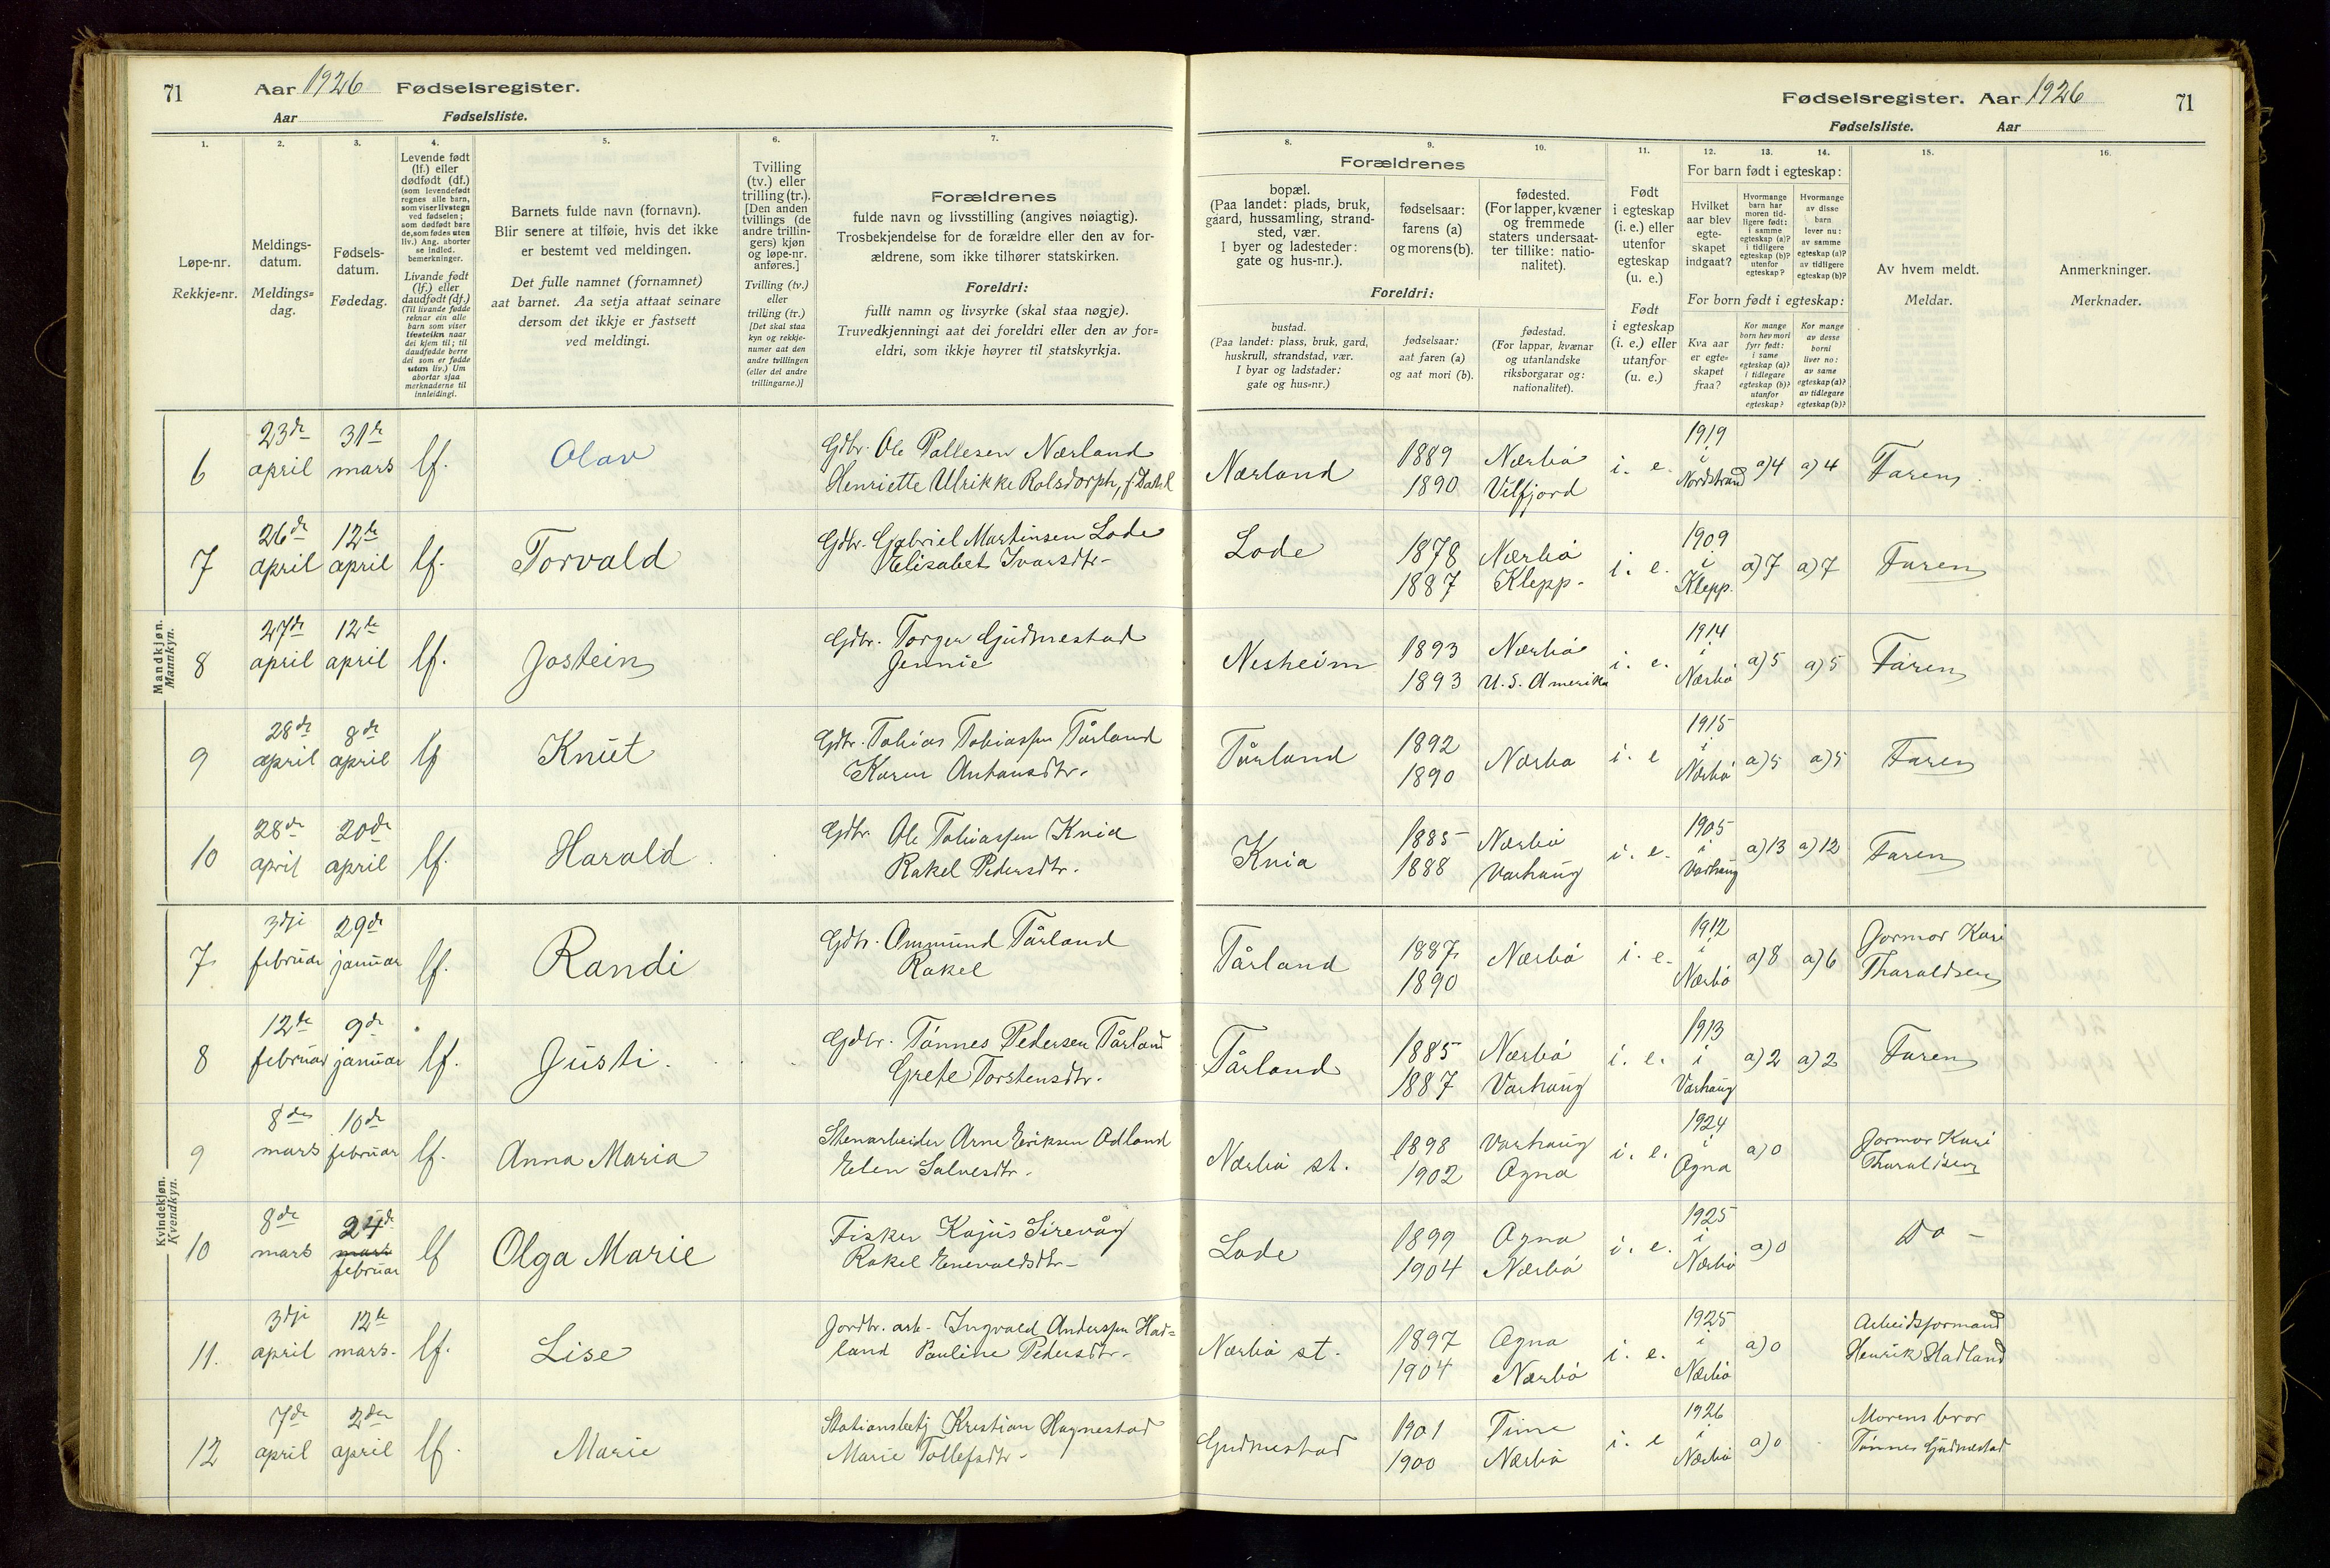 71 Aar 1926 Fødselsregister.
Aar Fødselsliste.
Fødselsregister. Aar 1926 71
Fødselsliste. Aar
1. 2. 3. 4. 5. 6. 7.
Løpe-nr.
Rekkje-nr.
Meldings-
datum.
Meldings-
dag.
Fødsels-
datum.
Fødedag.
Levende født
(lf.) eller
dødfødt (df.)
(som levendefødt
regnes alle barn,
som viser livstegn
ved fødselen;
som dødfødt bare
de, som fødes uten
liv.) Ang. aborter
se indled.
bemerkninger.
Livande født
(lf.) eller
daudfødt (df.)
(Til livande fødde
reknar ein alle
barn som viser
livsteikn naar
dei kjem til; til
daudfødde berre
dei som er fødde
utan liv.) Um
abortar sjaa
merknaderne til
innleidingi.
Barnets fulde navn (fornavn).
Blir senere at tilføie, hvis det ikke
er bestemt ved meldingen.
Det fulle namnet (fornamnet)
aat barnet. Aa setja attaat seinare
dersom det ikkje er fastsett
ved meldingi.
Tvilling
(tv.) eller
trilling (tr.).
[Den anden
tvillings (de
andre trillin-
gers) kjøn
og løpe-nr.
anføres.]
Tvilling (tv.)
eller
trilling (tr.)
[Det skal staa
kyn og rekkje-
numer aat den
andre tvillingen
(eller dei andre
trillingarne.)]
Forældrenes
fulde navn og livsstilling (angives nøiagtig).
Trosbekjendelse for de forældre eller den av for-
ældrene, som ikke tilhører statskirken.
Foreldri:
fullt namn og livsyrke (skal staa nøgje).
Truvedkjenningi aat dei foreldri eller den av for-
eldri, som ikkje høyrer til statskyrkja.
8. 9. 10. 11. 12. 13. 14. 15. 16.
Forældrenes
bopæl.
(Paa landet: plads, bruk,
gaard, hussamling, strand-
sted, vær.
I byer og ladesteder:
gate og hus-nr.).
fødselsaar:
farens (a)
og morens (b).
fødested.
(For lapper, kvæner
og fremmede
staters undersaat-
ter tillike: natio-
nalitet).
Foreldri:
bustad.
(Paa landet: plass, bruk, gard,
huskrull, strandstad, vær.
I byar og ladstader:
gate og hus-nr.)
fødselsaar:
aat faren (a)
og aat mori (b).
fødestad.
(For lappar, kvænar
og utanlandske
riksborgarar og:
nationalitet).
Født
i egteskap
(i. e.) eller
utenfor
egteskap
(u. e.)
Født
i egteskap
(i. e.) eller
utanfor
(u. e.)
For barn født i egteskap:
Hvilket
aar blev
egte-
skapet
indgaat?
Hvormange
barn har
moren tid-
ligere født:
i samme
egteskap (a)?
i tidligere
egteskap (b)?
utenfor
egteskap?
Hvormange
av disse
barn
lever nu:
av samme
egteskap (a)?
av tidligere
egteskap (b)?
For born født i egteskap:
Kva aar
er egte-
skapet
fraa?
Kor mange
born hev mori
fyrr født:
i same
egteskap (a)?
i tidlegare
egteskap (b)?
utanfor
egteskap?
Kor mange
av desse
borni
liver no:
av same
egteskap (a)?
av tidlegare
egteskap (b)?
Av hvem meldt.
Meldar.
Anmerkninger.
Merknader.
Mandkjøn.
Mannkyn.
6 23de april 31te mars lf. Olav Gdbr. Ole Pallesen Nærland
Henriette Ulrikke Rolsdorph, f Dahl
Nærland 1889 Nærbø i. e. 1919 i Nordstrand a)4 a)4 Faren
1890 Velfjord
7 26de april 12te april lf. Torvald Gdbr. Gabriel Martinsen Lode
Elisabet Ivarsdtr.
Lode 1878 Nærbø i. e. 1909 i Klepp. a)7 a)7 Faren
1887 Klepp.
8 27de april 12te april lf. Jostein Gdbr. Torger Gudmestad
Jennie
Nesheim 1893 Nærbø i. e. 1914 i Nærbø a)5 a)5 Faren
1893 U.S. Amerika
9 28de april 8de april lf Knut Gdbr. Tobias Tobiassen Tårland
Karen Antonsdtr.
Tårland 1892 Nærbø i. e 1915 i Nærbø a)5 a)5 Faren
1890
10 28de april 20de april lf. Harald Gdbr. Ole Tobiassen Knia
Rakel Pedersdtr.
Knia 1885 Nærbø i. e. 1905 i Varhaug a)13 a)12 Faren
1888 Varhaug
Kvindekjøn.
Kvendkyn.
7 3dji februar 29de januar lf. Randi Gdbr. Ommund Tårland
Rakel
Tårland 1887 Nærbø i. e. 1912 i Nærbø a)8 a)6 Jormor Kari
1890 Tharaldsen
8 12te februar 9de januar lf. Justi. Gdbr. Tønnes Pedersen Tårland
Grete Torstensdtr.
Tårland 1885 Nærbø i. e. 1913 i Varhaug a)2 a)2 Faren
1887 Varhaug
9 8de mars 16de februar lf. Anna Maria Stenarbeider Arne Eriksen Odland
Elen Salvesdtr.
Nærbø st. 1898 Varhaug i. e. 1924 i Ogna a)0 Jormor Kari
1902 Ogna Tharaldsen
10 8de mars 24de mars februar lf Olga Marie Fisker Kajus Sirevåg
Rakel Enevaldsdtr.
Lode 1899 Ogna i. e. 1925 i Nærbø a)0 Do -
1904 Nærbø
11. 3dji april 12te mars. lf. Lise Jordbr. arb. Ingvald Anderssen Had=
land Pauline Pedersdtr.
Nærbø st. 1897 Ogna i. e. 1925 i Nærbø a)0 Arbeidsformand
1904 Nærbø Henrik Hadland
12 7de april 2den april lf. Marie Stationsbetj Kristian Hognestad
Marie Tollefsdtr.
Gudmestad 1901 Time i. e 1926 i Nærbø a)0 Morens bror
1900 Nærbø Tønnes Gudmestad